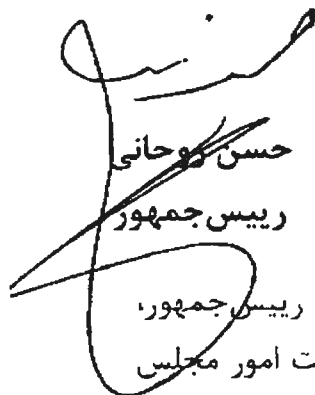 حسن روحانی
رییس‌جمهور
رییس‌جمهور،
ت امور مجلس